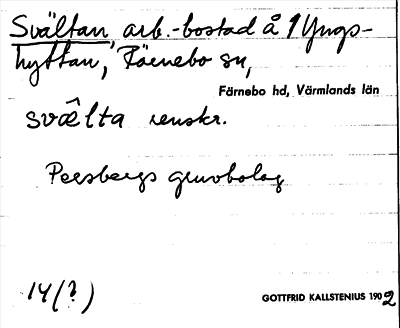 Svältan, arb.-bostad å 1 Yngs-
hyttan, Färnebo sn,
Färnebo hd, Värmlands län
svœ̂lta renskr.
Persbergs gruvbolag
14(?)
GOTTFRID KALLSTENIUS 1902